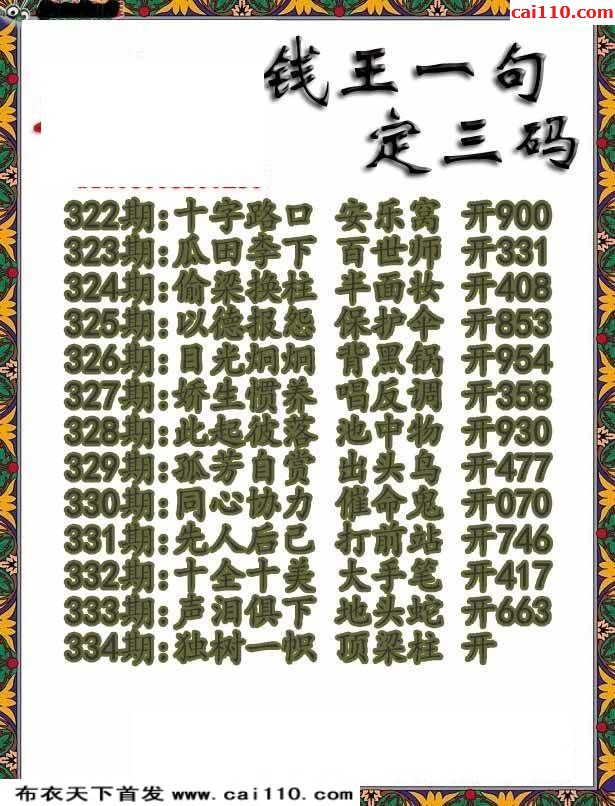 cai110.com
钱王一句
定三码
322期:十字路口 安乐窝 开900
323期:瓜田李下 百世师 开331
324期:偷梁换柱 半面妆 开408
325期:以德报怨 保护伞 开853
326期:目光炯炯 背黑锅 开954
327期:娇生惯养 唱反调 开358
328期:此起彼落 池中物 开930
329期:孤芳自赏 出头鸟 开477
330期:同心协力 催命鬼 开070
331期:先人后己 打前站 开746
332期:十全十美 大手笔 开417
333期:声泪俱下 地头蛇 开663
334期:独树一帜 顶梁柱 开
布衣天下首发 www.cai110.com